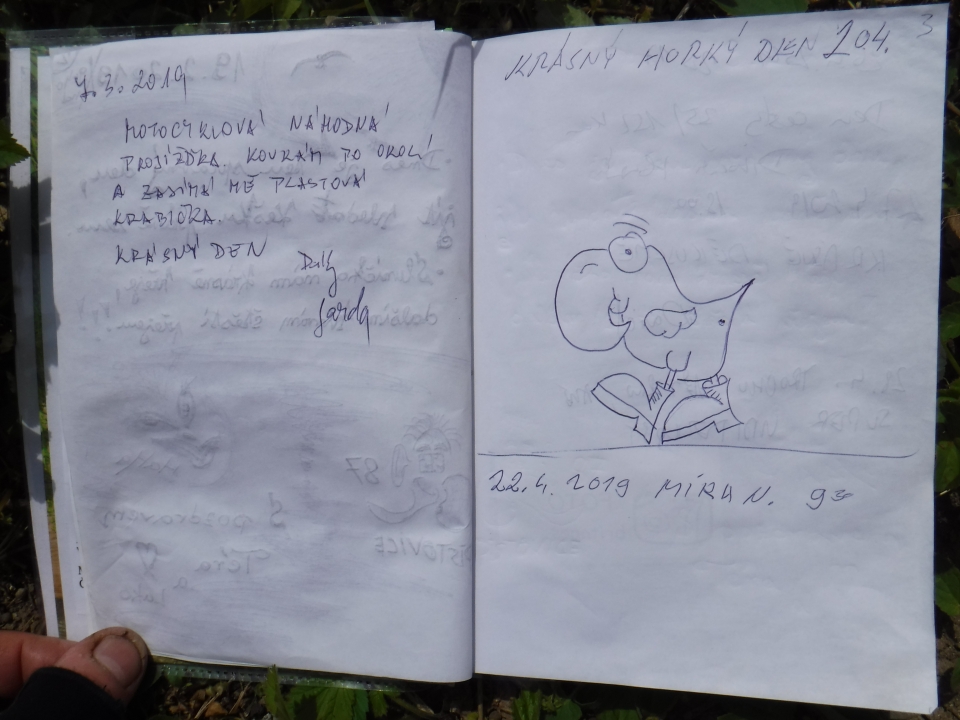 7.3.2019
MOTOCYKLOVÁ NÁHODNÁ
PROJÍŽĎKA. KOUKÁM PO OKOLÍ
A ZAJÍMÁ MĚ PLASTOVÁ
KRABIČKA.
KRÁSNÝ DEN
Jarda
KRÁSNÝ HORKÝ DEN 204.
3
22.4.2019 MÍRA N.